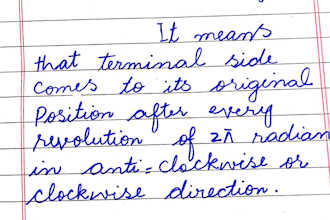 It means
that terminal side
comes to its original
Position after every
revolution of 2π radian
in anti=clockwise or
clockwise direction.